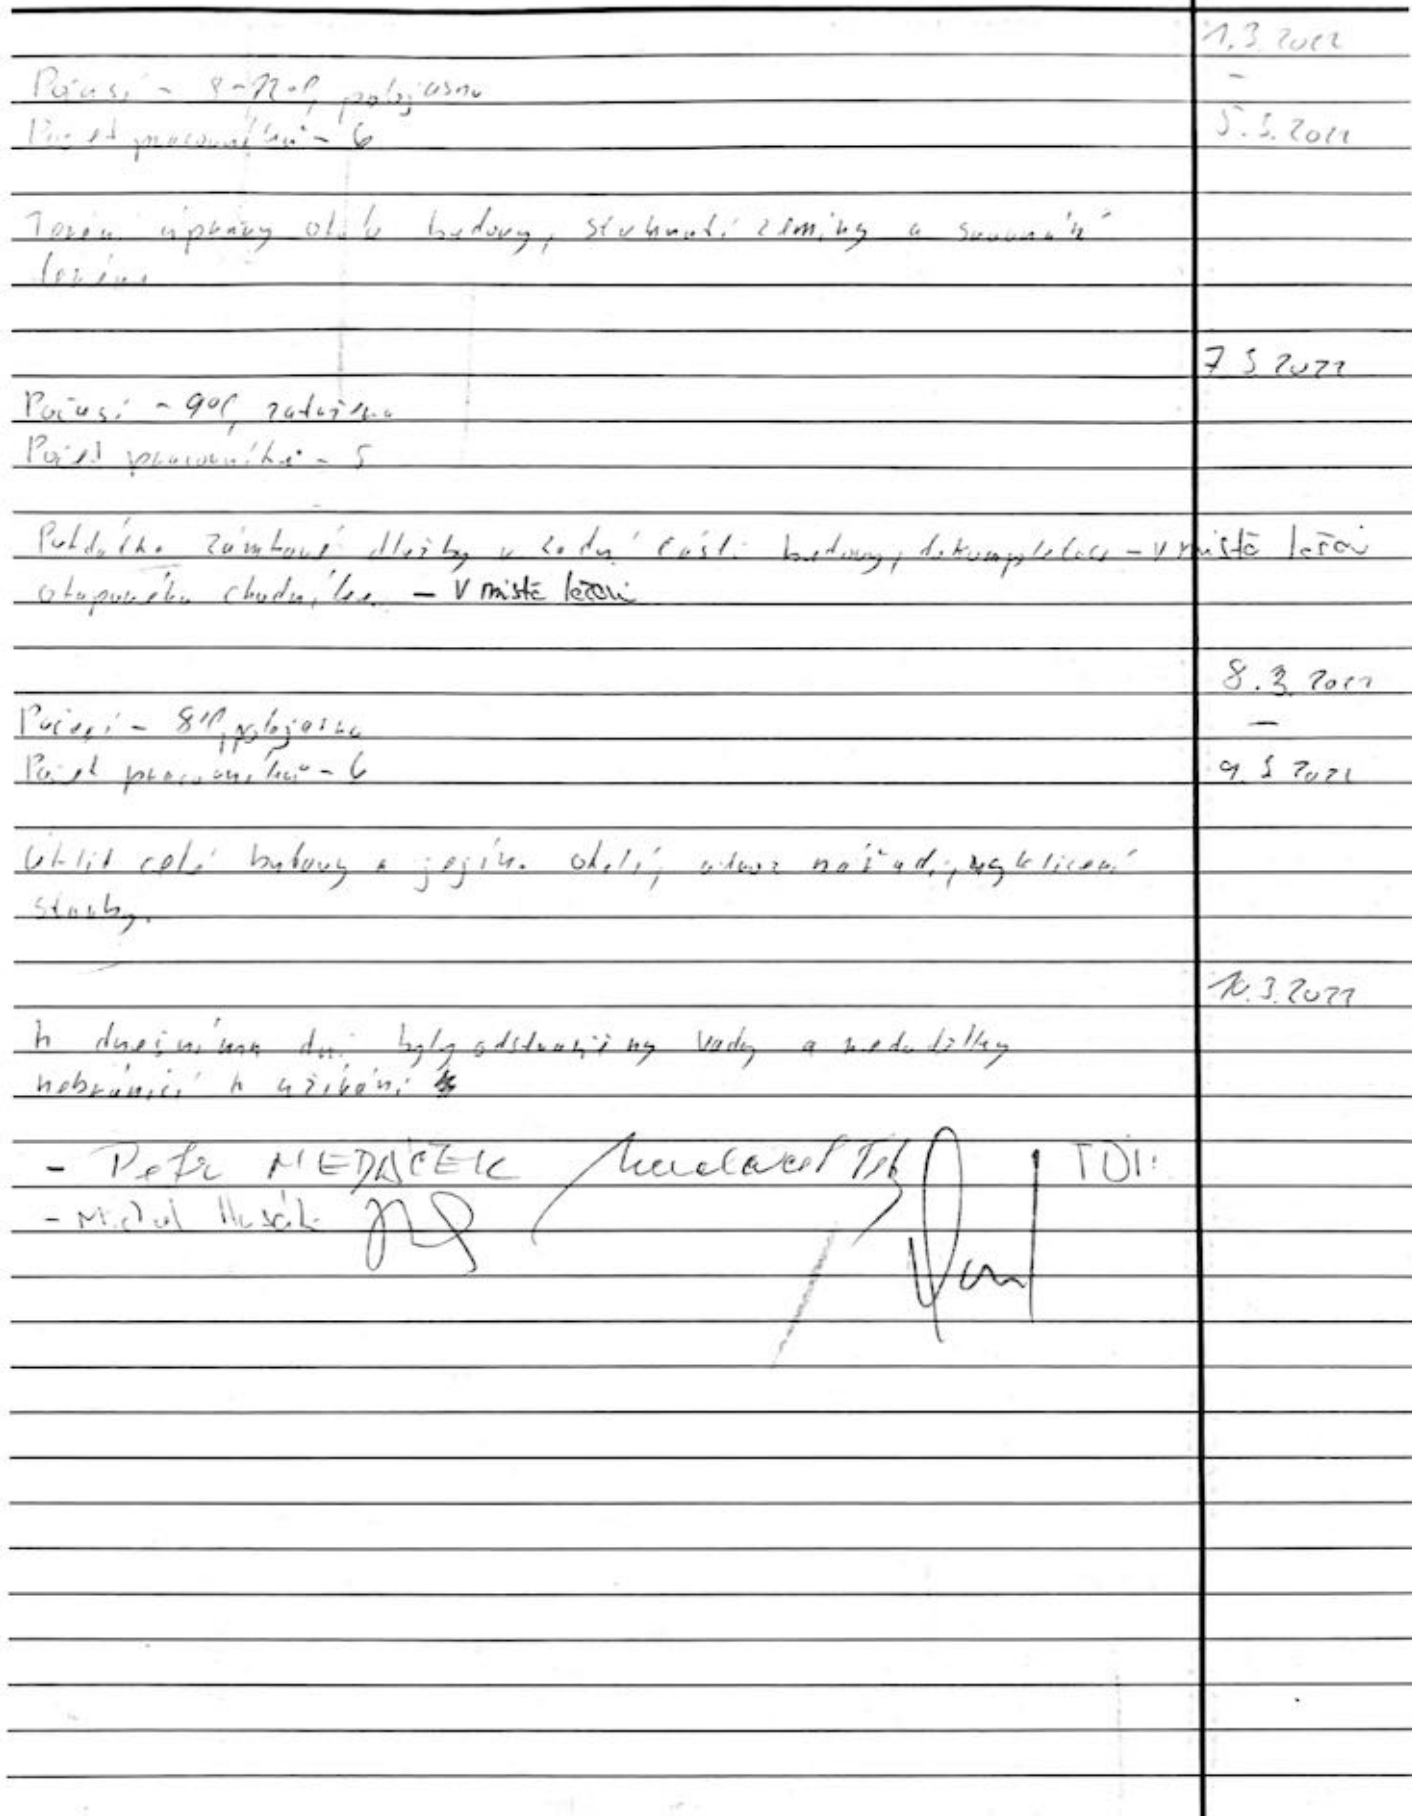 1.3.2022
Počasí - 8-12°C, polojasno
-
Počet pracovníků - 6
5.3.2022
Terén. úpravy okolo budovy, stuhnutí zeminy a srovnání
terénu
7.3.2022
Počasí - 9°C, zataženo
Počet pracovníků - 5
Pokládka zámkové dlažby v zadní části budovy, dokompletace - v místě lešení
okapového chodníku. - v místě lešení
8.3.2022
Počasí - 8°C, polojasno
-
Počet pracovníků - 6
9.3.2022
Úklid celé budovy a jejího okolí, odvoz nářadí, vyklizení
stavby.
10.3.2022
K dnešnímu dni byly odstraněny vady a nedodělky
nebránící k užívání
- Petr MEDÁČEK TDI
- Michal Husák